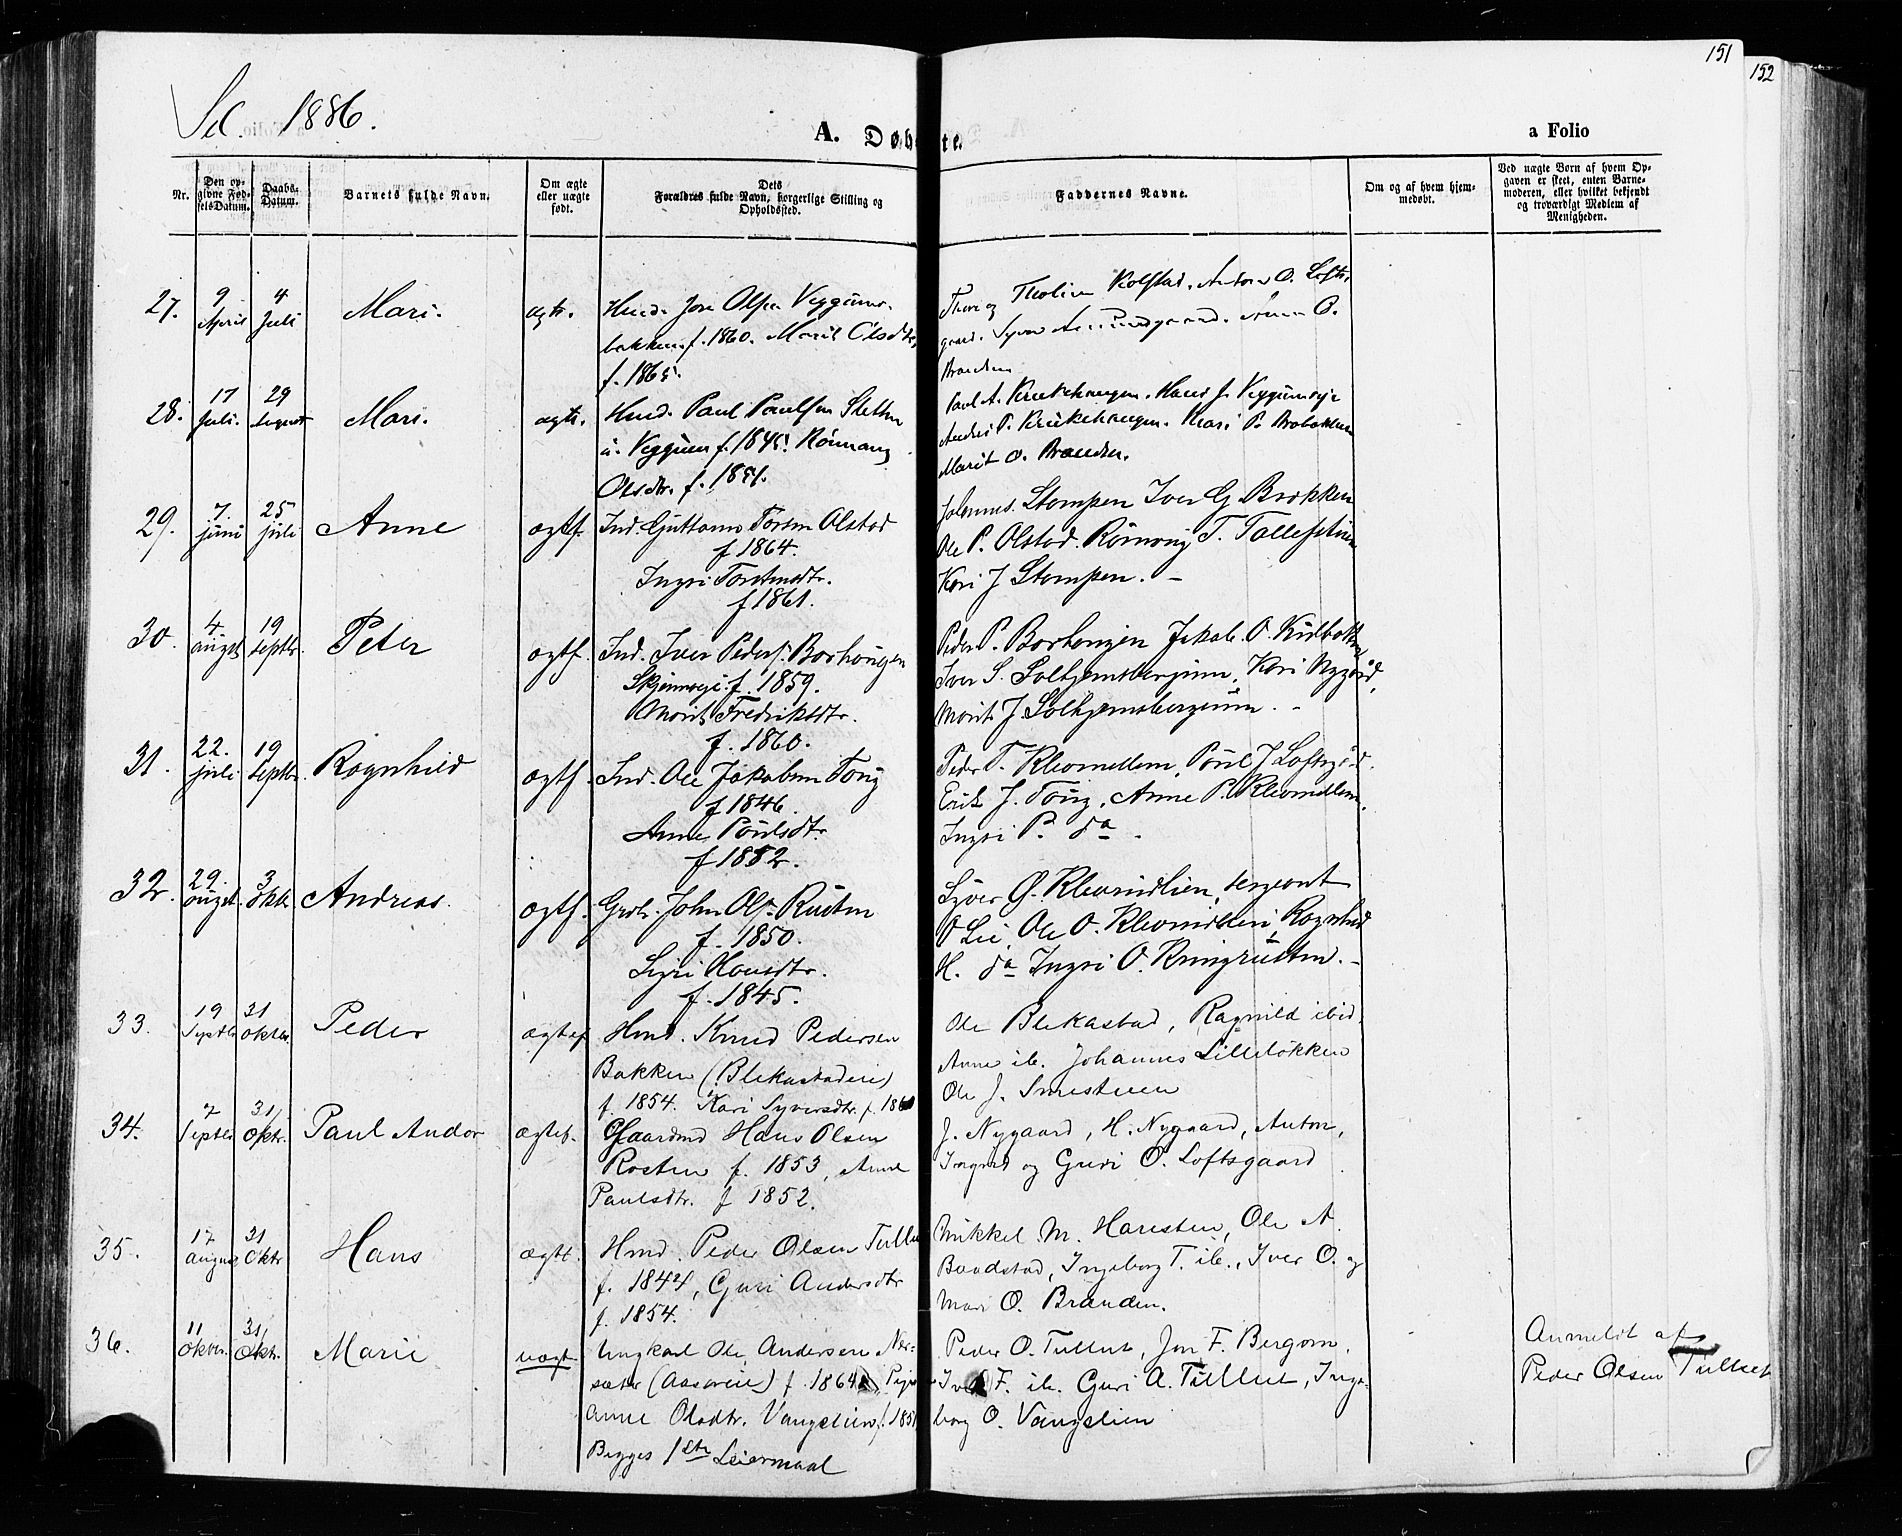 151
152
Sel. 1886.
A. Døbte.
a Folio
Nr.
Den op-
givne Fød-
selsDatum.
Daabs-
Datum.
Barnets fulde Navn.
Om ægte
eller uægte
født.
Dets
Forældres fulde Navn, borgerlige Stilling og
Opholdssted.
Faddernes Navne.
Om og af hvem hjem-
medøbt.
Ved uægte Børn af hvem Op-
gaven er skeet, enten Barne-
moderen, eller hvilket bekjendt
og troværdigt Medlem af
Menigheden.
27. 9 April 4 Juli Mari. ægte.
Husm. Jon Olsen Veggums-
bakken f. 1860. Marit Olsdtr,
f. 1865.
Thore og Tholine Kolstad. Anton O. Lofts-
gaard. Syver O.
Brænden
28. 17 Juli. 29 August Mari. ægte.
Husm. Paul Paulsen Sletten
u. Veggum f. 1845. Rønnaug
Olsdtr. f. 1851.
Paul A. Krukehaugen. Hans J. Veggumseje
Anders P. Krukehaugen. Mari P. Brobakken
Marit O. Brænden.
29. 7. juni 25 juli Anne ægtf.
Ind. Guttorm Torsen Olstad
f 1864.
Ingri Torstensdtr.
f 1861.
Johannes Stompen Iver G. Brækken
Ole P. Olstad. Rønnaug T. Tollefstuen
Kari J Stompen. –
30. 4 august 19 septbr. Peter ægtf.
Ind. Iver Peders. Borhaugen
Skjenneje. f. 1859.
Marit Fredriksdtr.
f. 1860.
Peder P. Borhaugen Jakob O.
Iver S. Solhjemsbergium, Kari Nygård,
Marit J. Solhjemsbergium. –
31. 22. juli 19 septbr. Ragnhild ægtf.
Ind. Ole Jakobsen Toug
f 1846.
Anne Poulsdtr.
f 1852.
Peder T. Kleomellem, Poul J Loftsgård.
Erik J. Toug, Anne P. Kleomellem,
Ingri P. do.
32. 29. augst. 3 oktbr Andreas. ægtf.
Grdbr. John Ols. Rusten
f. 1850.
Sigri Hansdtr.
f. 1845.
Syver G. Kleomidlien, sergeant
O Lie, Ole O. Kleomidlien, Ragnhild
H. do Ingri O. Ringrusten. –
33. 19 Septbr 31 oktbr. Peder ægtef
Hmd. Knud Pedersen
Bakken (Blekastadeie)
f. 1854. Kari Syversdtr. f. 1860
Ole Blekastad, Ragnild ibid.
Anne ib. Johannes Lilleløkken
Ole J. Smestuen
34. 7 Septbr 31/ oktr. Paul Andor ægtef.
Gaardmd Hans Olsen
Rosten f. 1853, Anne
Paulsdtr. f 1852.
J. Nygaard, H. Nygaard, Anton,
Ingrid og Guri O. Loftsgaard
35. 17 august 31 Oktr Hans ægtf.
Hmd. Peder Olsen Tullut
f. 1844, Guri Andersdtr
f. 1854.
Mikkel M. Haresten, Ole A.
Baadstad, Ingeborg T. ib., Iver O. og
Mari O. Brænden.
36. 11 oktbr. 31/ Oktr. Marie uægt
Ungkarl Ole Andersen
(Aasøreie) f. 1864, Pige
Anne Olsdtr. Vangslien f. 1851
Begges 1ste Leiermaal
Peder O. Tullut, Jon F. Bergom,
Iver F. ib. Guri A. Tullut, Inge-
borg O. Vangslien
Anmeldt af
Peder Olsen Tullut